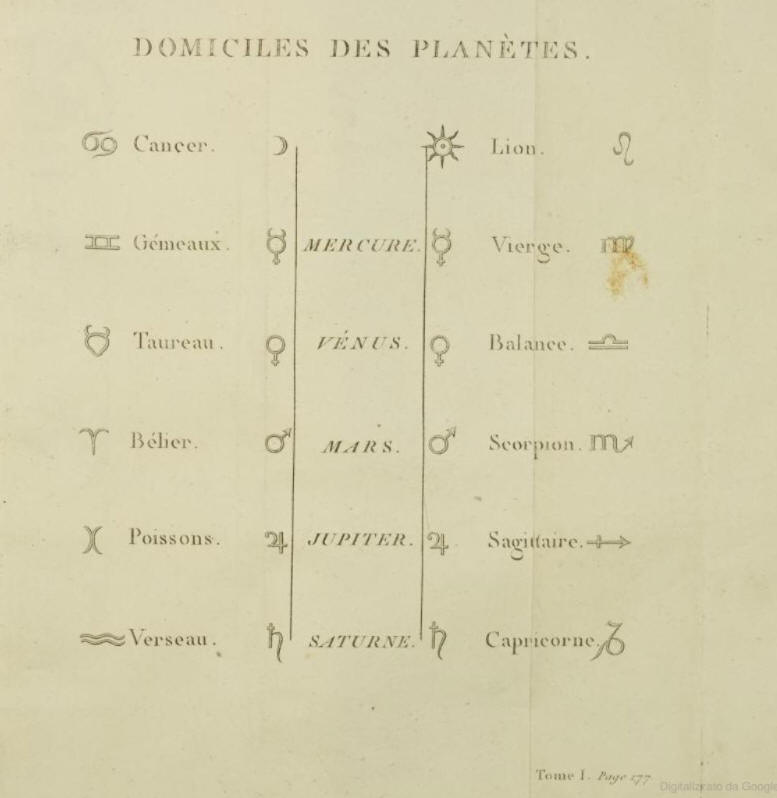 DOMICILES DES PLANÈTES.
♋ Cancer. ☽ ☉ Lion. ♌
♊ Gémeaux. ☿ MERCURE. ☿ Vierge. ♍
♉ Taureau. ♀ VÉNUS. ♀ Balance. ♎
♈ Bélier. ♂ MARS. ♂ Scorpion. ♏
♓ Poissons. ♃ JUPITER. ♃ Sagittaire. ♐
♒ Verseau. ♄ SATURNE. ♄ Capricorne. ♑
Tome I. Page 177.
Digitalizzato da Google